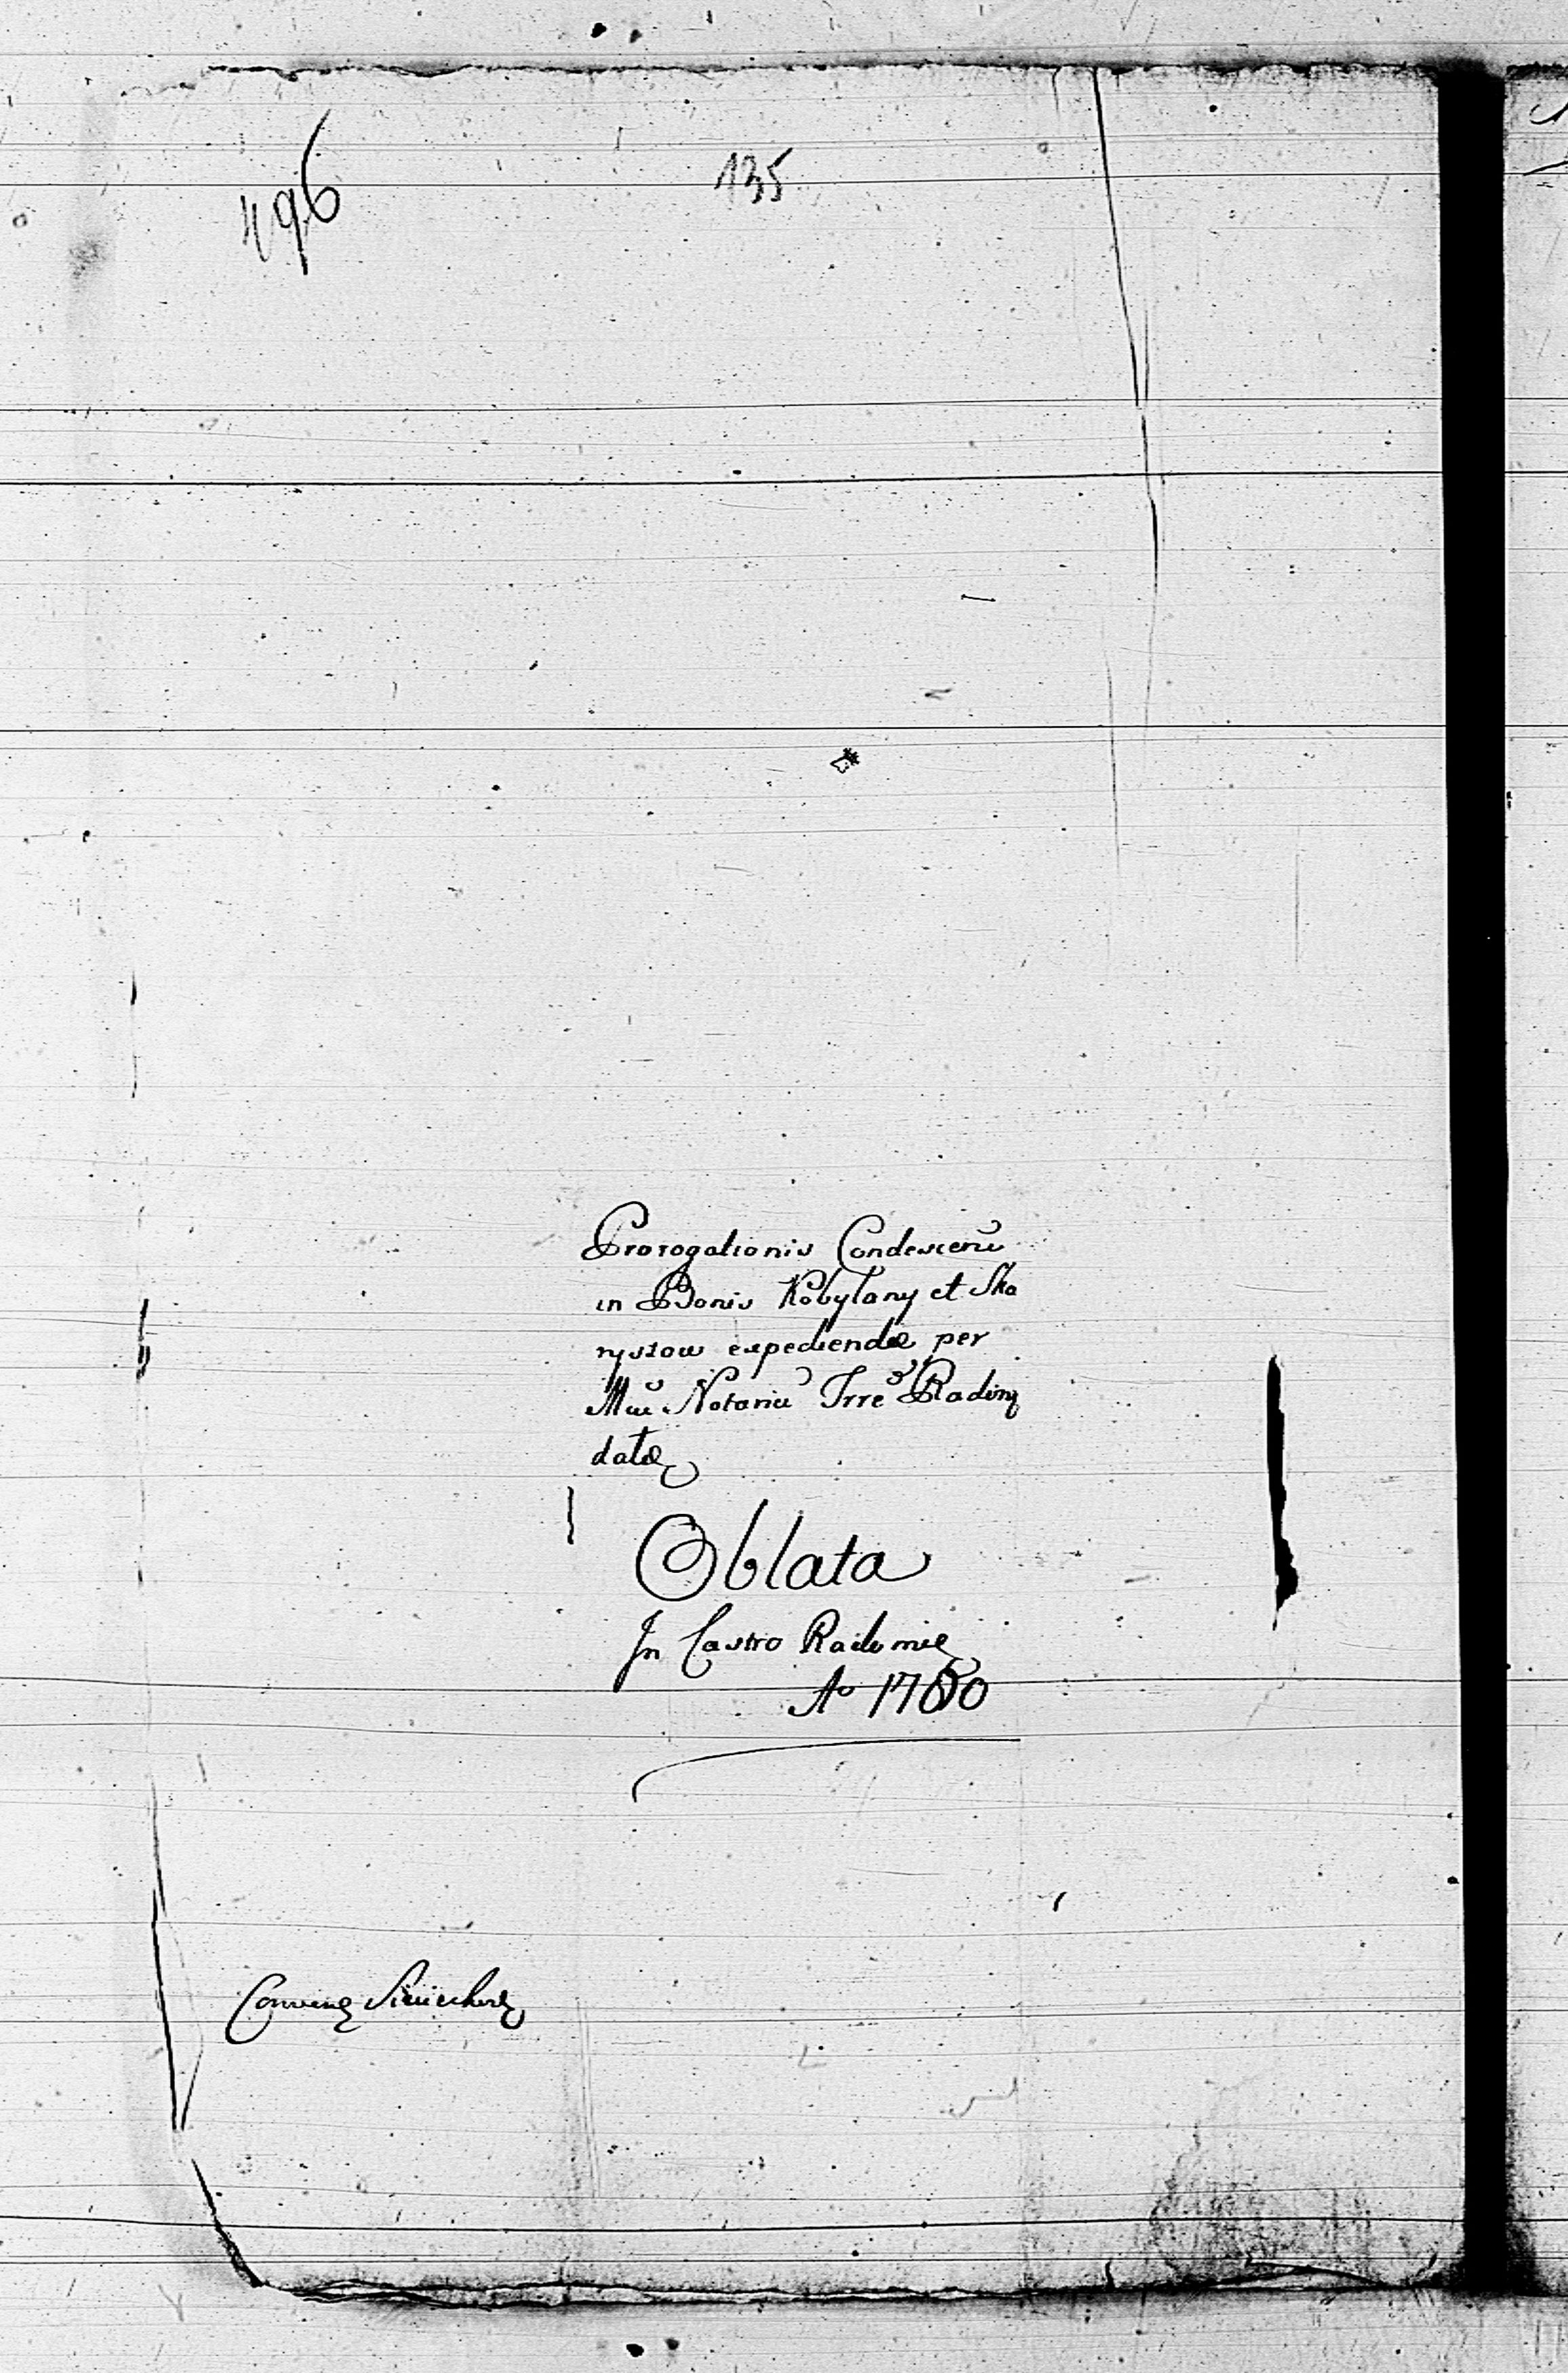 496
135
Prorogationis Condescenū
in Bonis Kobylany et Ska
ryszow expediendæ per
Mū Notariū Trre Radom
datæ
Oblata
In Castro Radomie
Ao 1780